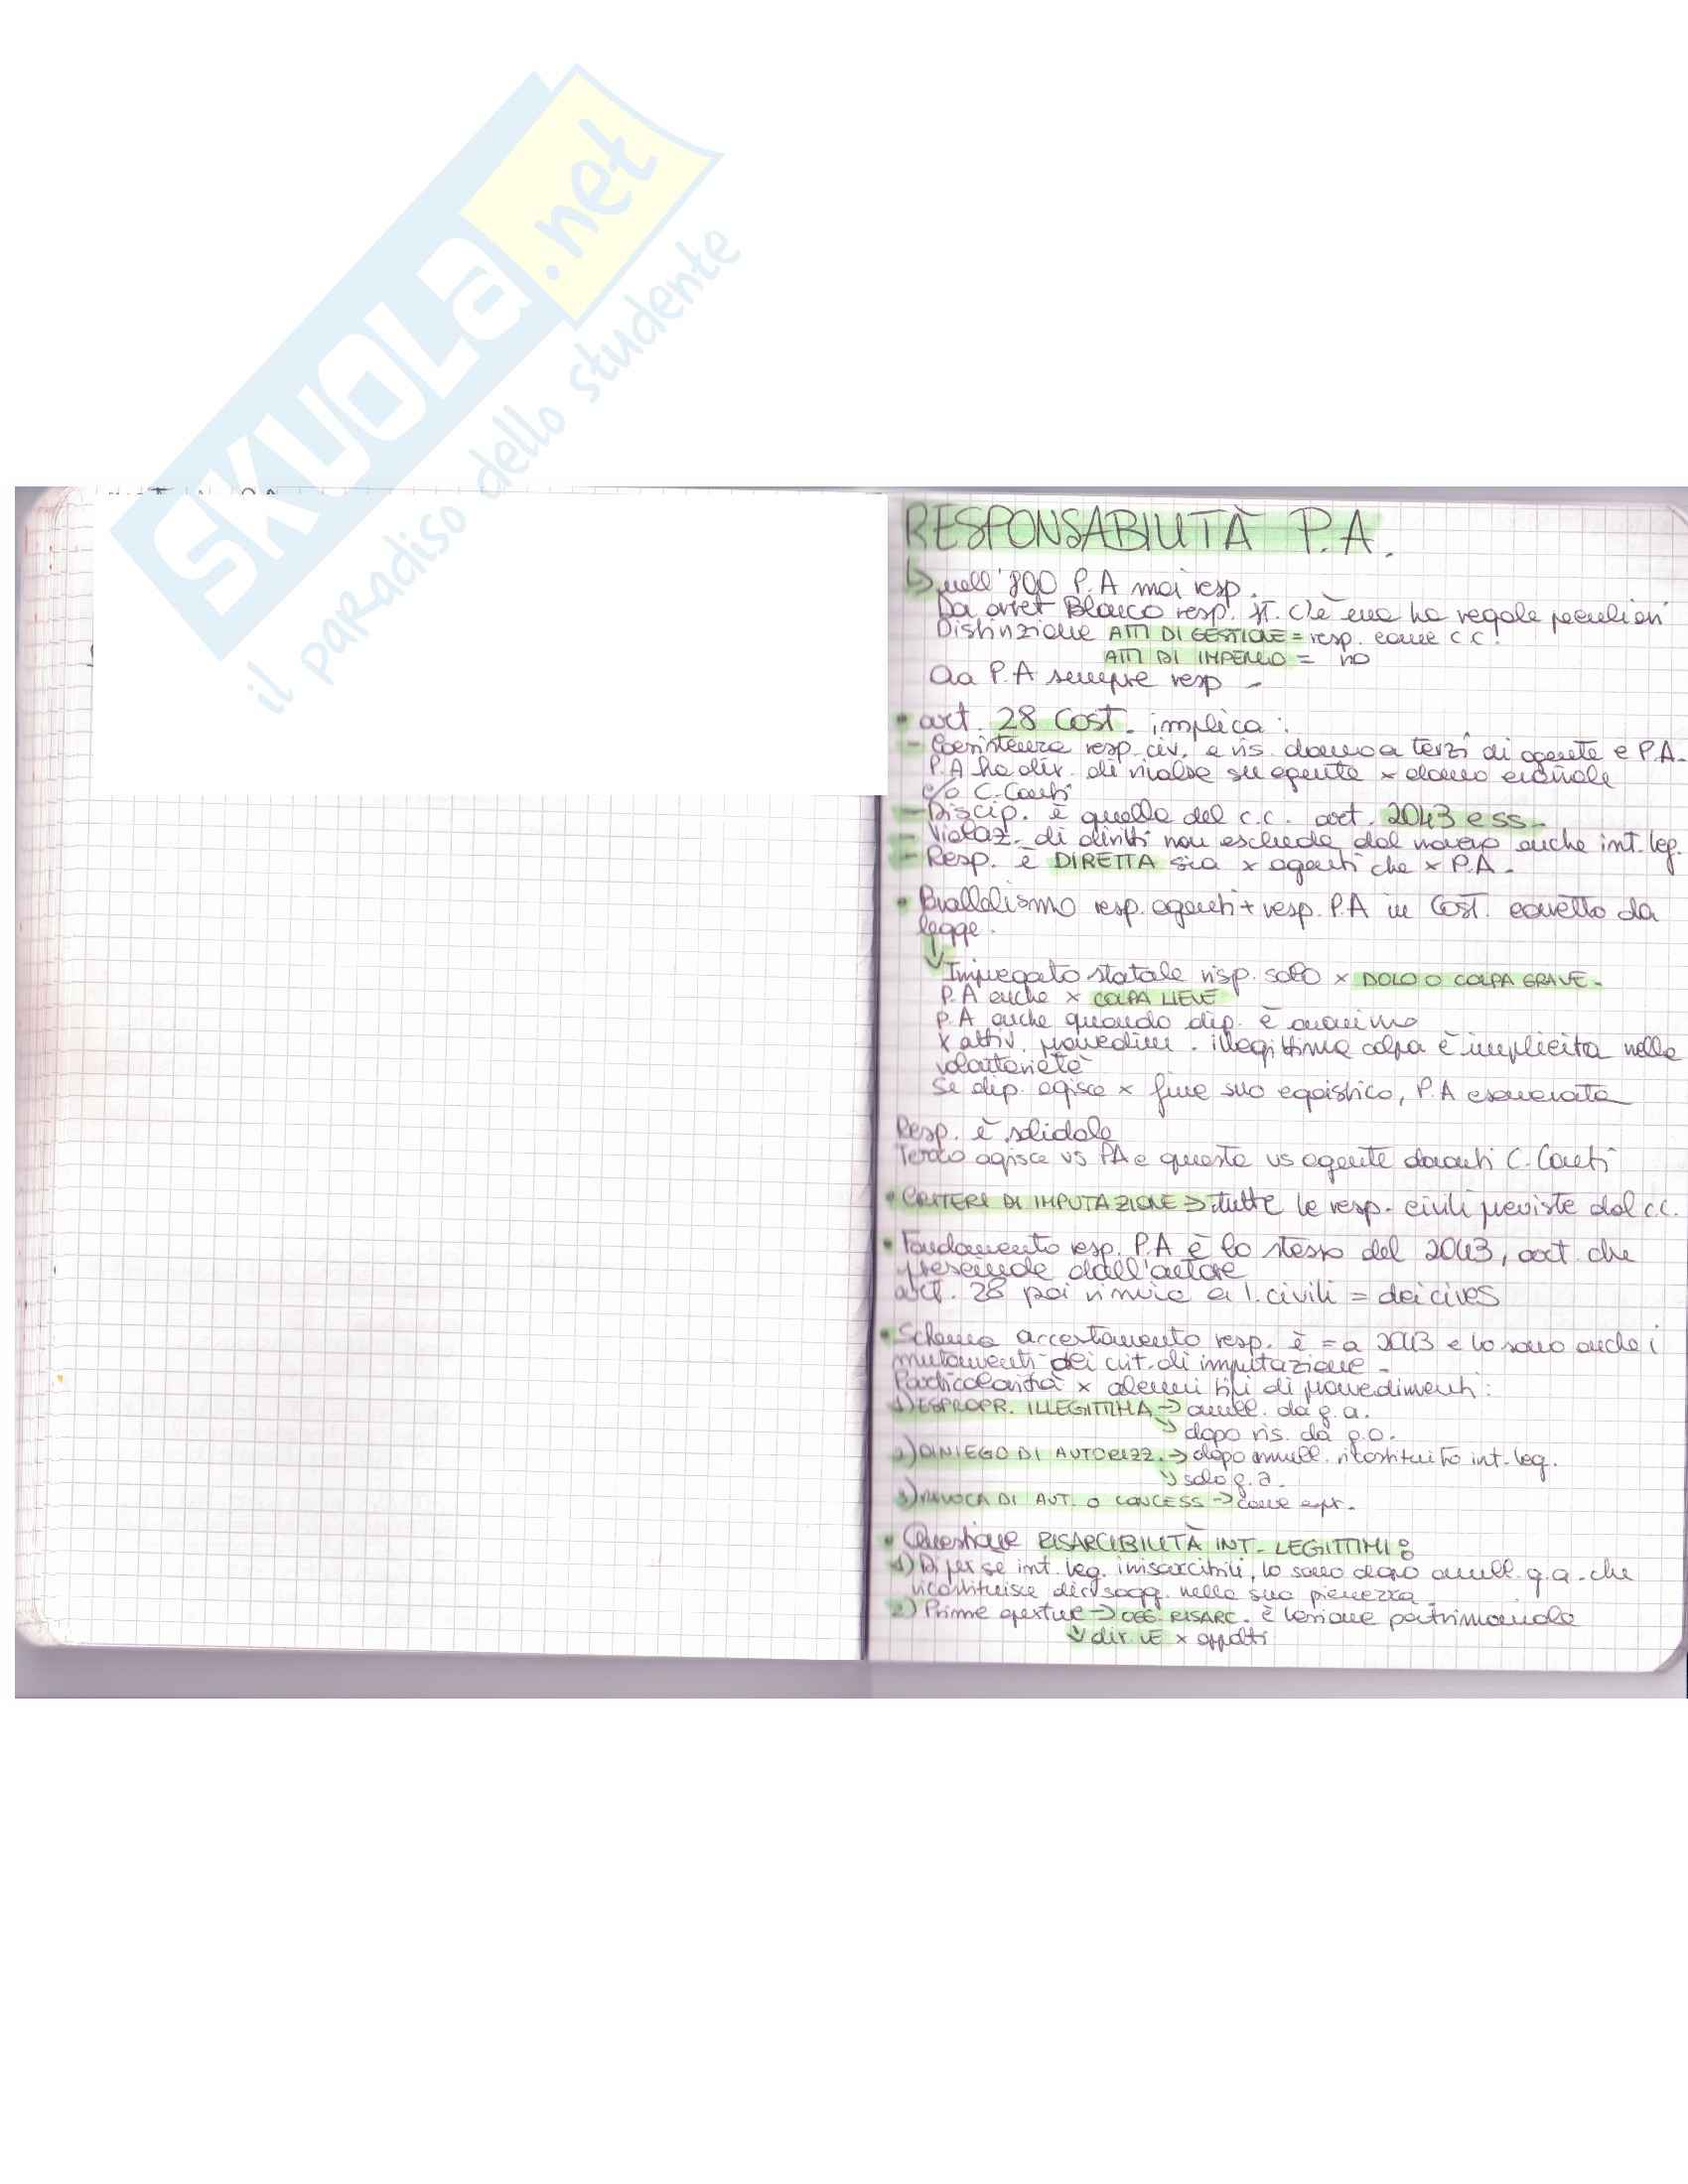 SKUOLA.net
il paradiso dello studente
RESPONSABILITÀ P.A.
↳ nell'800 P.A mai resp.
Da arret Blanco resp. c'è ma ha regole peculiari
Distinzione ATTI DI GESTIONE = resp. come c.c.
ATTI DI IMPERIO = no
Ora P.A sempre resp -
• art. 28 COST. implica:
- Coesistenza resp. civ. e ris. danno a terzi di agente e P.A.
P.A ha dir. di rivalsa su agente x danno erariale
c/o C. Conti
- Discip. è quella del c.c. art. 2043 e ss-
- Violaz. di diritti non esclude dal novero anche int. leg.
- Resp. è DIRETTA sia x agenti che x P.A.
• Parallelismo resp. agenti + resp. P.A in COST. corretto da
legge.
↓ Impiegato statale risp. solo x DOLO O COLPA GRAVE-
P.A anche x COLPA LIEVE
P.A anche quando dip. è anonimo
x attiv. provedim. illegittima colpa è implicita nella
volontarietà
Se dip. agisce x fine suo egoistico, P.A esonerata
Resp. è solidale
Terzo agisce vs PA e questa vs agente davanti C. Conti
• CRITERI DI IMPUTAZIONE → tutte le resp. civili previste dal c.c.
• Fondamento resp. P.A è lo stesso del 2043, art. che
prescinde dall'autore
art. 28 poi rinvia a l. civili = dei cives
• Schema accertamento resp. è = a 2043 e lo sono anche i
mutamenti dei crit. di imputazione-
Particolarità x alcuni tipi di provedimenti:
1) ESPROPR. ILLEGITTIMA → annull. da g.a.
↘ dopo ris. da g.o.
2) DINIEGO DI AUTORIZZ. → dopo annull. ricostituito int. leg.
↘ solo g.a.
3) REVOCA DI AUT. O CONCESS → come espr.
• Questione RISARCIBILITÀ INT. LEGITTIMI:
1) Di per se int. leg. irrisarcibili, lo sono dopo annull. g.a. che
ricostituisce dir. sogg. nella sua pienezza
2) Prime aperture → OGG. RISARC. è lesione patrimoniale
↘ dir. UE x appalti